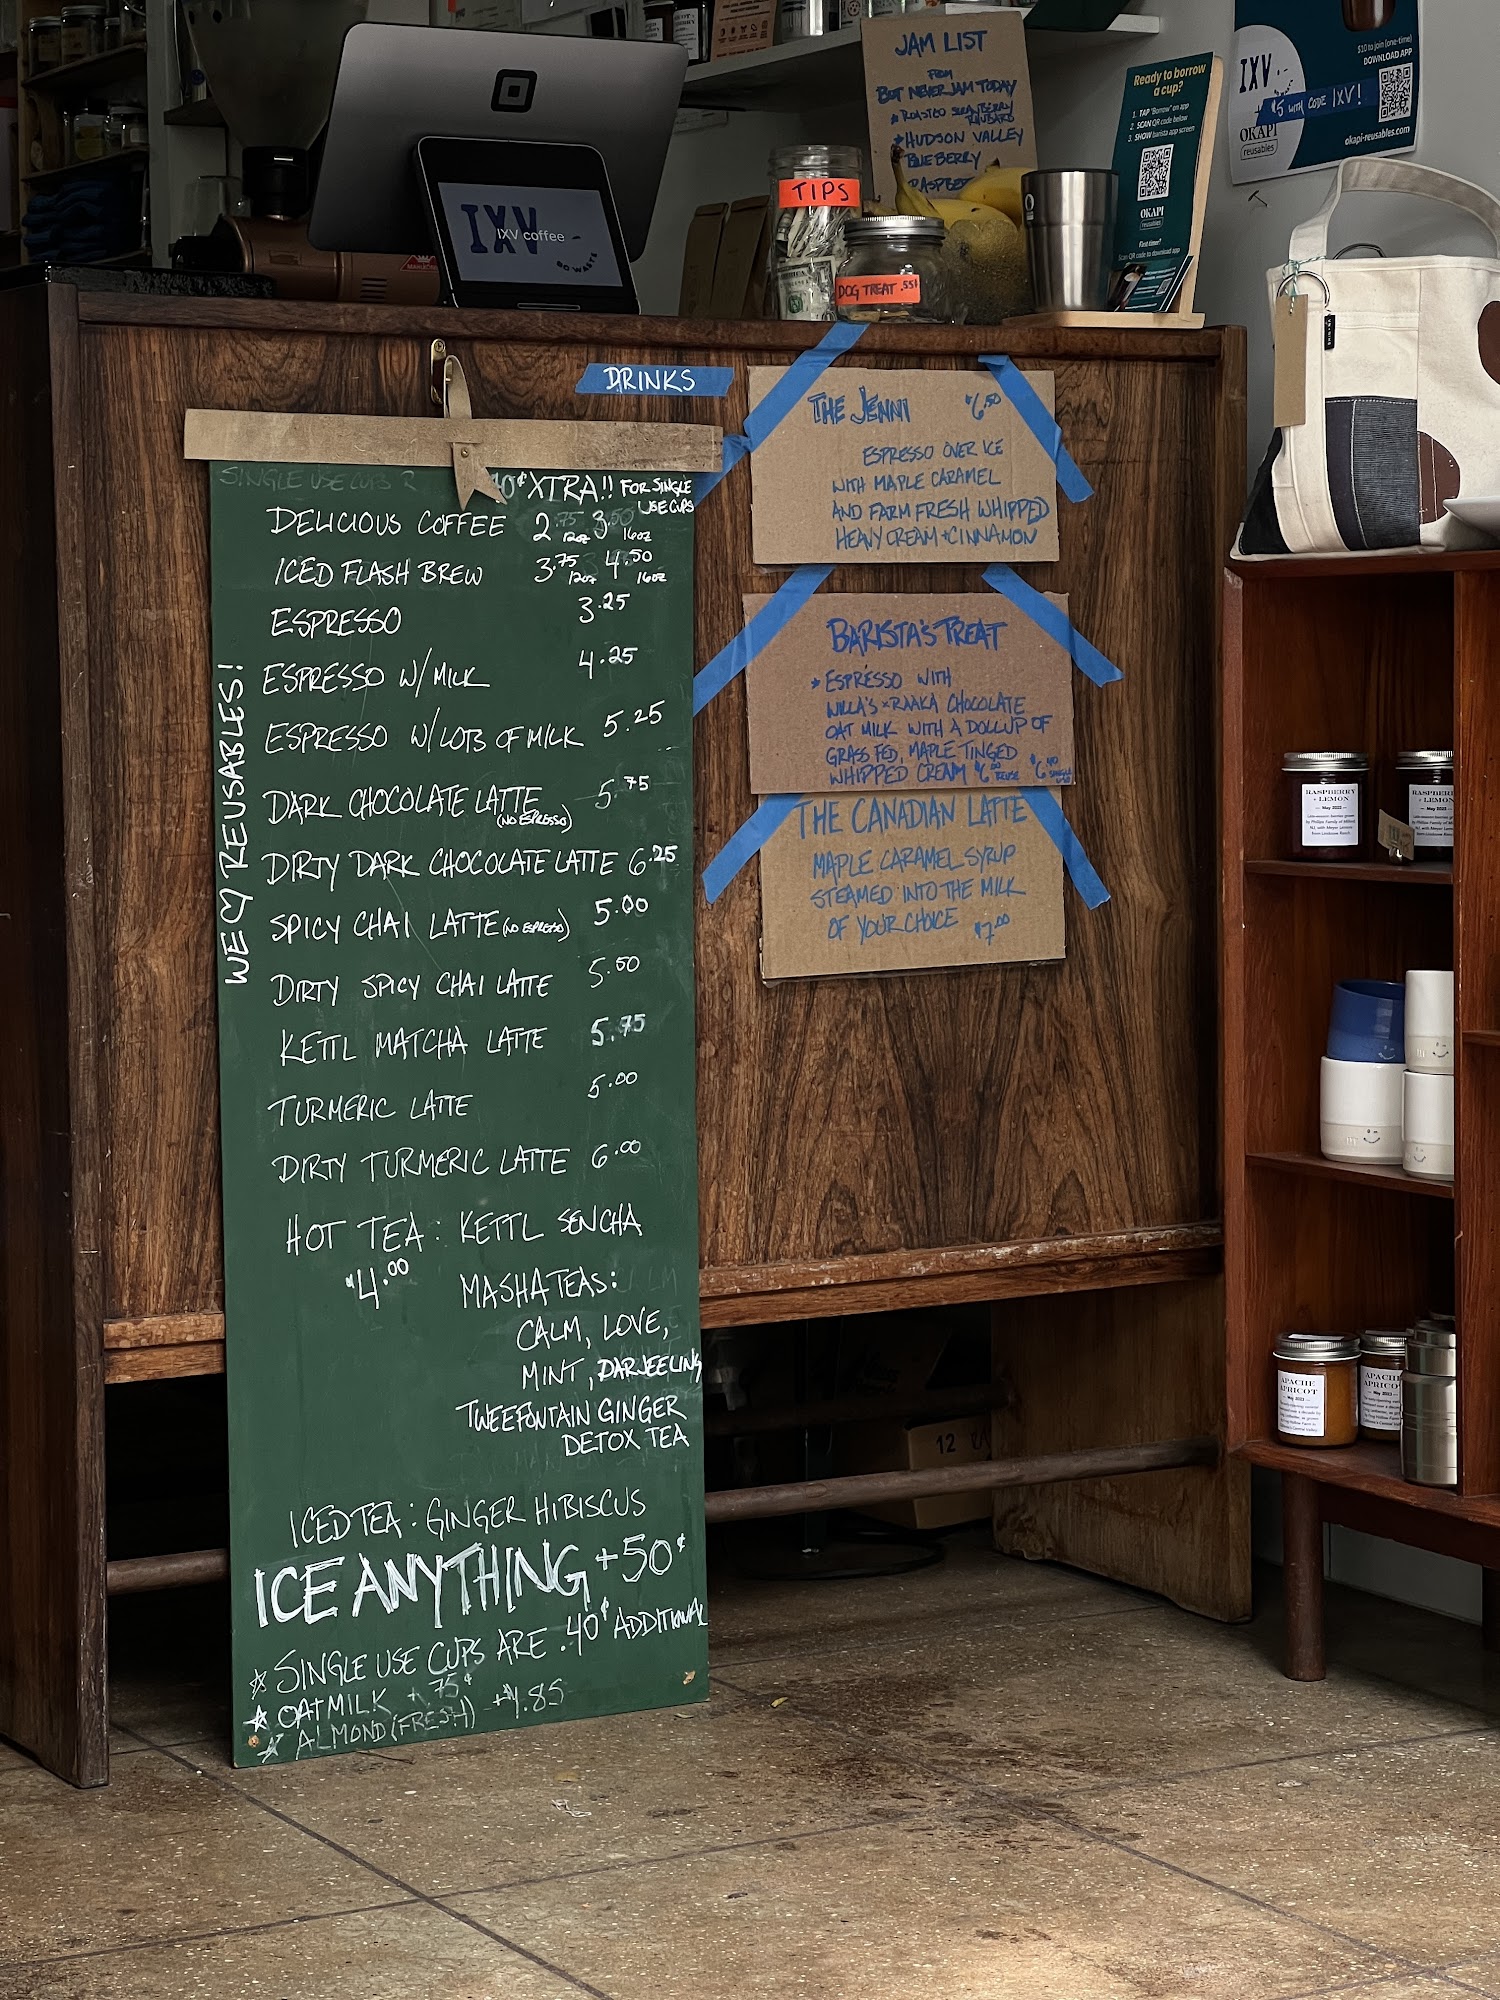 JAM LIST
FROM
BUT NEVER JAM TODAY
* ROASTED STRAWBERRY
RHUBARB
* HUDSON VALLEY
BLUEBERRY
RASPBE
Ready to borrow
a cup?
1. TAP "Borrow" on app
2. SCAN QR code below
3. SHOW barista app screen
OKAPI
reusables
First time?
Scan QR code to download app
IXV
$10 to join (one-time)
DOWNLOAD APP
$5 WITH CODE IXV!
OKAPI
reusables
okapi-reusables.com
IXV
IXV coffee
GO WASTE
TIPS
DOG TREAT .55¢
DRINKS
SINGLE USE CUPS
40¢ XTRA!! FOR SINGLE
USE CUPS
DELICIOUS COFFEE 2.75 12oz 3.50 16oz
ICED FLASH BREW 3.75 12oz 4.50 16oz
ESPRESSO 3.25
ESPRESSO W/ MILK 4.25
ESPRESSO W/ LOTS OF MILK 5.25
DARK CHOCOLATE LATTE 5.75
(NO ESPRESSO)
DIRTY DARK CHOCOLATE LATTE 6.25
SPICY CHAI LATTE (NO ESPRESSO) 5.00
DIRTY SPICY CHAI LATTE 5.50
KETTL MATCHA LATTE 5.75
TURMERIC LATTE 5.00
DIRTY TURMERIC LATTE 6.00
HOT TEA: KETTL SENCHA
$4.00 MASHA TEAS:
CALM, LOVE,
MINT, DARJEELING
TWEEFONTAIN GINGER
DETOX TEA
ICED TEA: GINGER HIBISCUS
ICE ANYTHING +50¢
☆ SINGLE USE CUPS ARE .40¢ ADDITIONAL
☆ OATMILK + 75¢
☆ ALMOND (FRESH) +$1.85
WE ♡ REUSABLES!
THE JENNI $6.50
ESPRESSO OVER ICE
WITH MAPLE CARAMEL
AND FARM FRESH WHIPPED
HEAVY CREAM + CINNAMON
BARISTA'S TREAT
* ESPRESSO WITH
WILLA'S × RAAKA CHOCOLATE
OAT MILK WITH A DOLLUP OF
GRASS FED, MAPLE TINGED
WHIPPED CREAM $6.00 REUSE $6.40 SINGLE USE
THE CANADIAN LATTE
MAPLE CARAMEL SYRUP
STEAMED INTO THE MILK
OF YOUR CHOICE $7.00
RASPBERRY
+ LEMON
May 2023
RASPBERRY
+ LEMON
APACHE
APRICOT
May 2023
APACHE
APRICOT
12